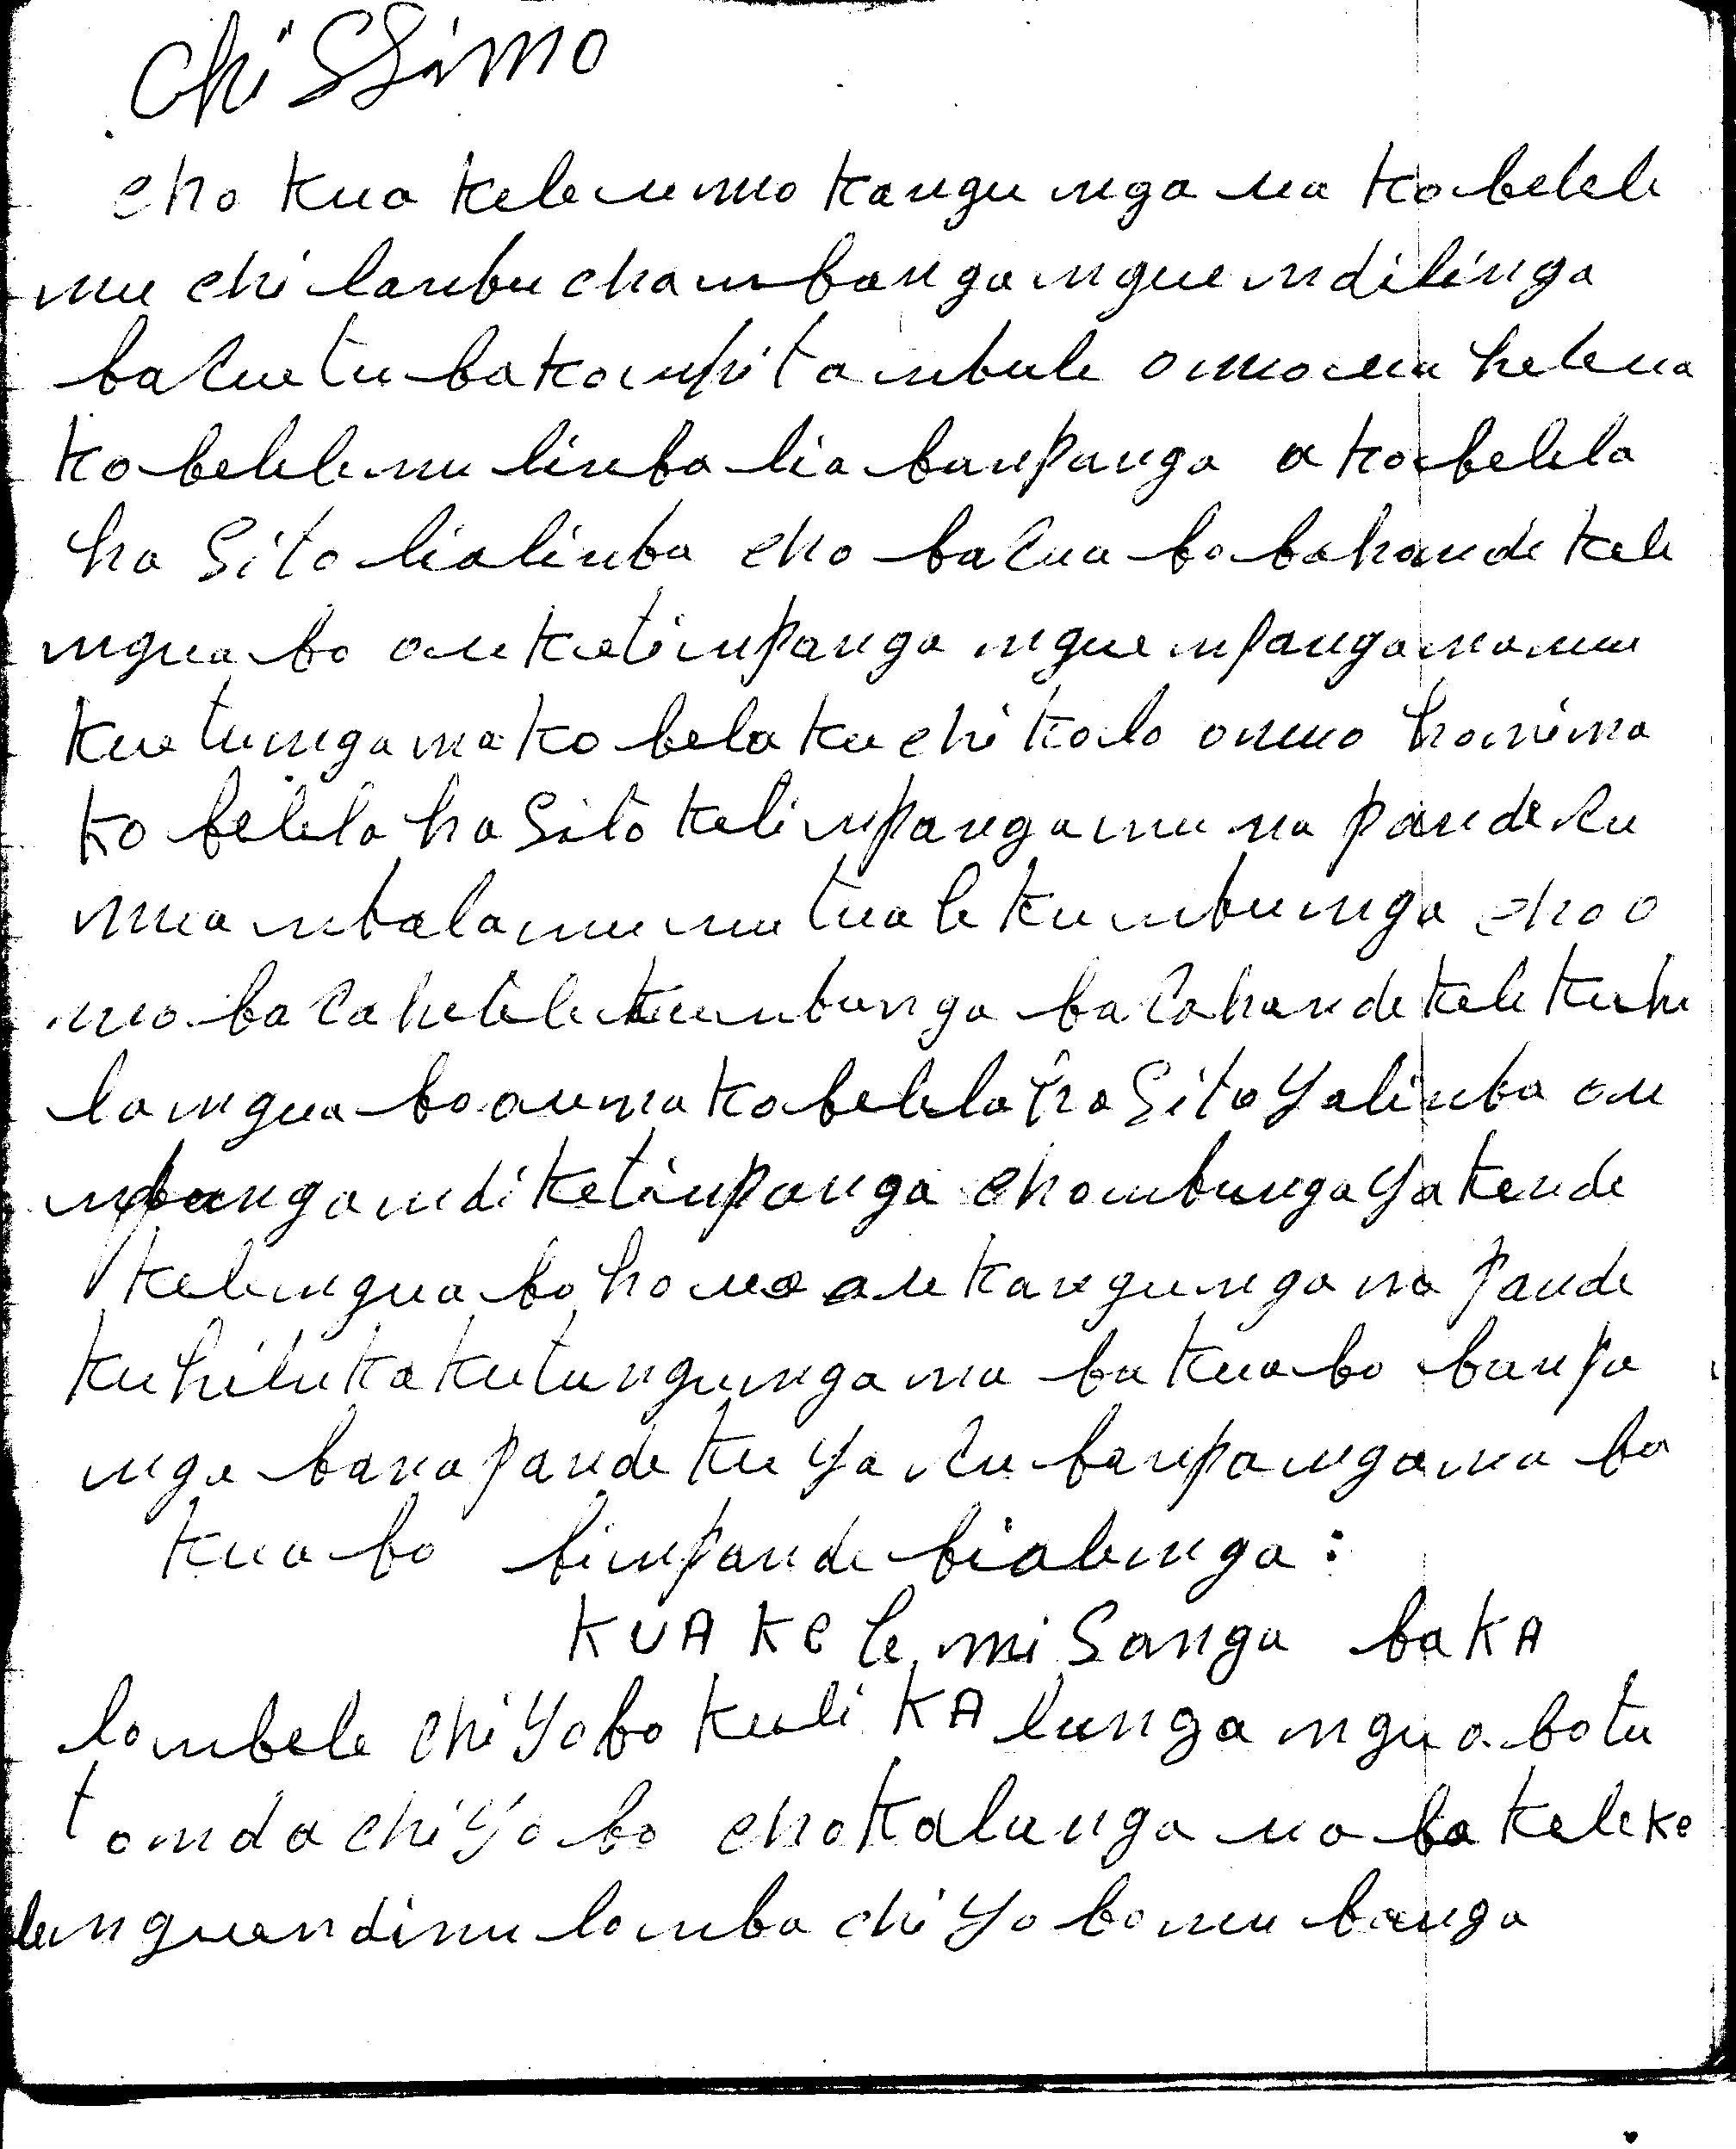 Chissimo
cho kua kele umo kangu nga na kobelele
mu chi lambu cha mbanga ngue ndilinga
bacuetu baka mpita mbule omo ua hetena
kobelele mu limba lia bampanga a kobelela
ha sito lialimba cho bacua ba bahande kele
ngua bo ou ketimpanga ngue mpanga namu
kuetu nga na kobela ku chikalo omo hanima
kobelela ha sito keli mpanga mu na pande cu
mua mbala mu mu tuale ku mbunga cho o
mo bacahetele kumbunga bacahande kele kuhe
la ngua bo ou na kobelela ha sito yalimba ou
mpanga ndi ketimpanga cho mbunga yakende
kele ngua bo hou ou kangu nga na pande
kuhiluka kutungu nga na bakuabo bampa
nga bana pande ku ya cu bampanga na ba
kuabo bimpande bialunga:
KUAKele misanga baKA
lombele chiyabo kuli KAlunga ngua bo tu
tonda chiyabo cho kalunga ua bakeleke
le nguendinu lomba chiyabo mu banga